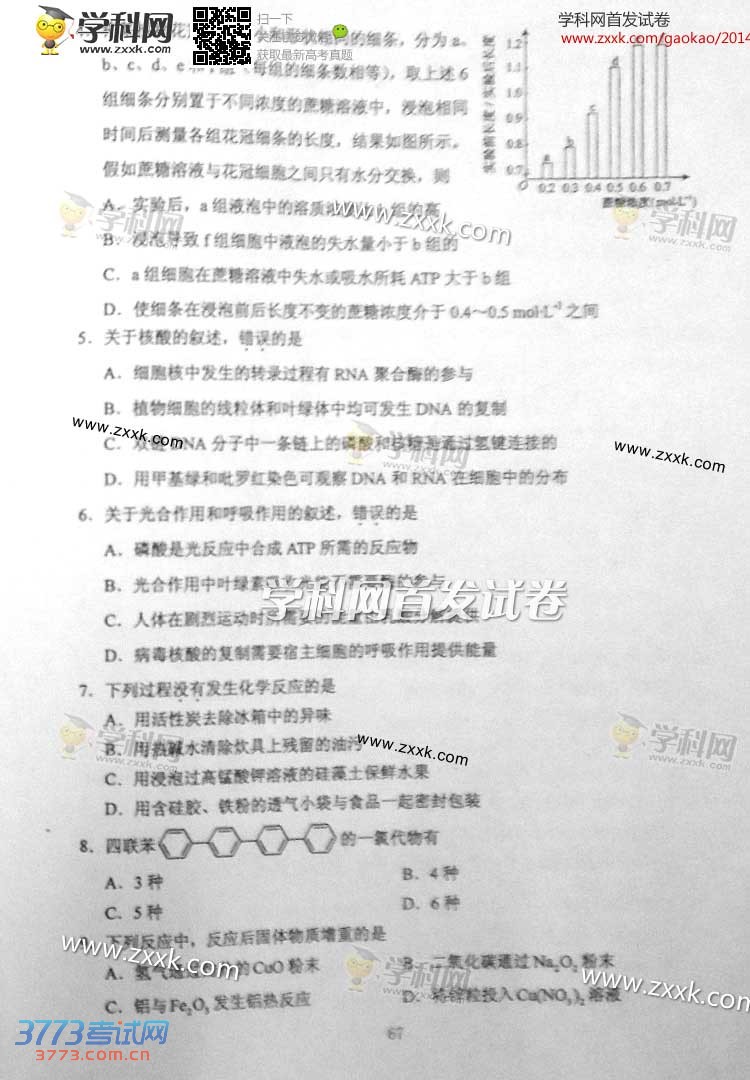 学科网
www.zxxk.com
扫一下
获取最新高考真题
学科网首发试卷
www.zxxk.com/gaokao/2014
的细条，分为a、
b、c、d、e
每组的细条数相等），取上述6
组细条分别置于不同浓度的蔗糖溶液中，浸泡相同
时间后测量各组花冠细条的长度，结果如图所示。
假如蔗糖溶液与花冠细胞之间只有水分交换，则
1.2
1.1
1.0
0.9
0.8
0.7
a
b
c
d
O
0.2 0.3 0.4 0.5 0.6 0.7
蔗糖浓度(mol·L⁻¹)
A．实验后，a组液泡中的溶质浓度比b组的高
B．浸泡导致f组细胞中液泡的失水量小于b组的
C．a组细胞在蔗糖溶液中失水或吸水所耗ATP大于b组
D．使细条在浸泡前后长度不变的蔗糖浓度介于0.4～0.5 mol·L⁻¹之间
5．关于核酸的叙述，错误的是
A．细胞核中发生的转录过程有RNA聚合酶的参与
B．植物细胞的线粒体和叶绿体中均可发生DNA的复制
C．双链DNA分子中一条链上的磷酸和核糖是通过氢键连接的
D．用甲基绿和吡罗红染色可观察DNA和RNA在细胞中的分布
6．关于光合作用和呼吸作用的叙述，错误的是
A．磷酸是光反应中合成ATP所需的反应物
B．光合作用中叶绿素
的参与
学科网首发试卷
C．人体在剧烈运动时所需要的
D．病毒核酸的复制需要宿主细胞的呼吸作用提供能量
7．下列过程没有发生化学反应的是
A．用活性炭去除冰箱中的异味
B．用热碱水清除炊具上残留的油污
C．用浸泡过高锰酸钾溶液的硅藻土保鲜水果
D．用含硅胶、铁粉的透气小袋与食品一起密封包装
8．四联苯
的一氯代物有
A．3种
B．4种
C．5种
D．6种
下列反应中，反应后固体物质增重的是
A．氢气通过
的CuO粉末
B．二氧化碳通过Na₂O₂粉末
C．铝与Fe₂O₃发生铝热反应
D．将锌粒投入Cu(NO₃)₂溶液
67
3773考试网
3773.com.cn
学科网
zxxk.com
学科网
www.zxxk.com
www.zxxk.com
学科网
www.zxxk.com
学科网
zxxk.com
www.zxxk.com
学科网
zxxk.com
www.zxxk.com
学科网
zxxk.com
www.zxxk.com